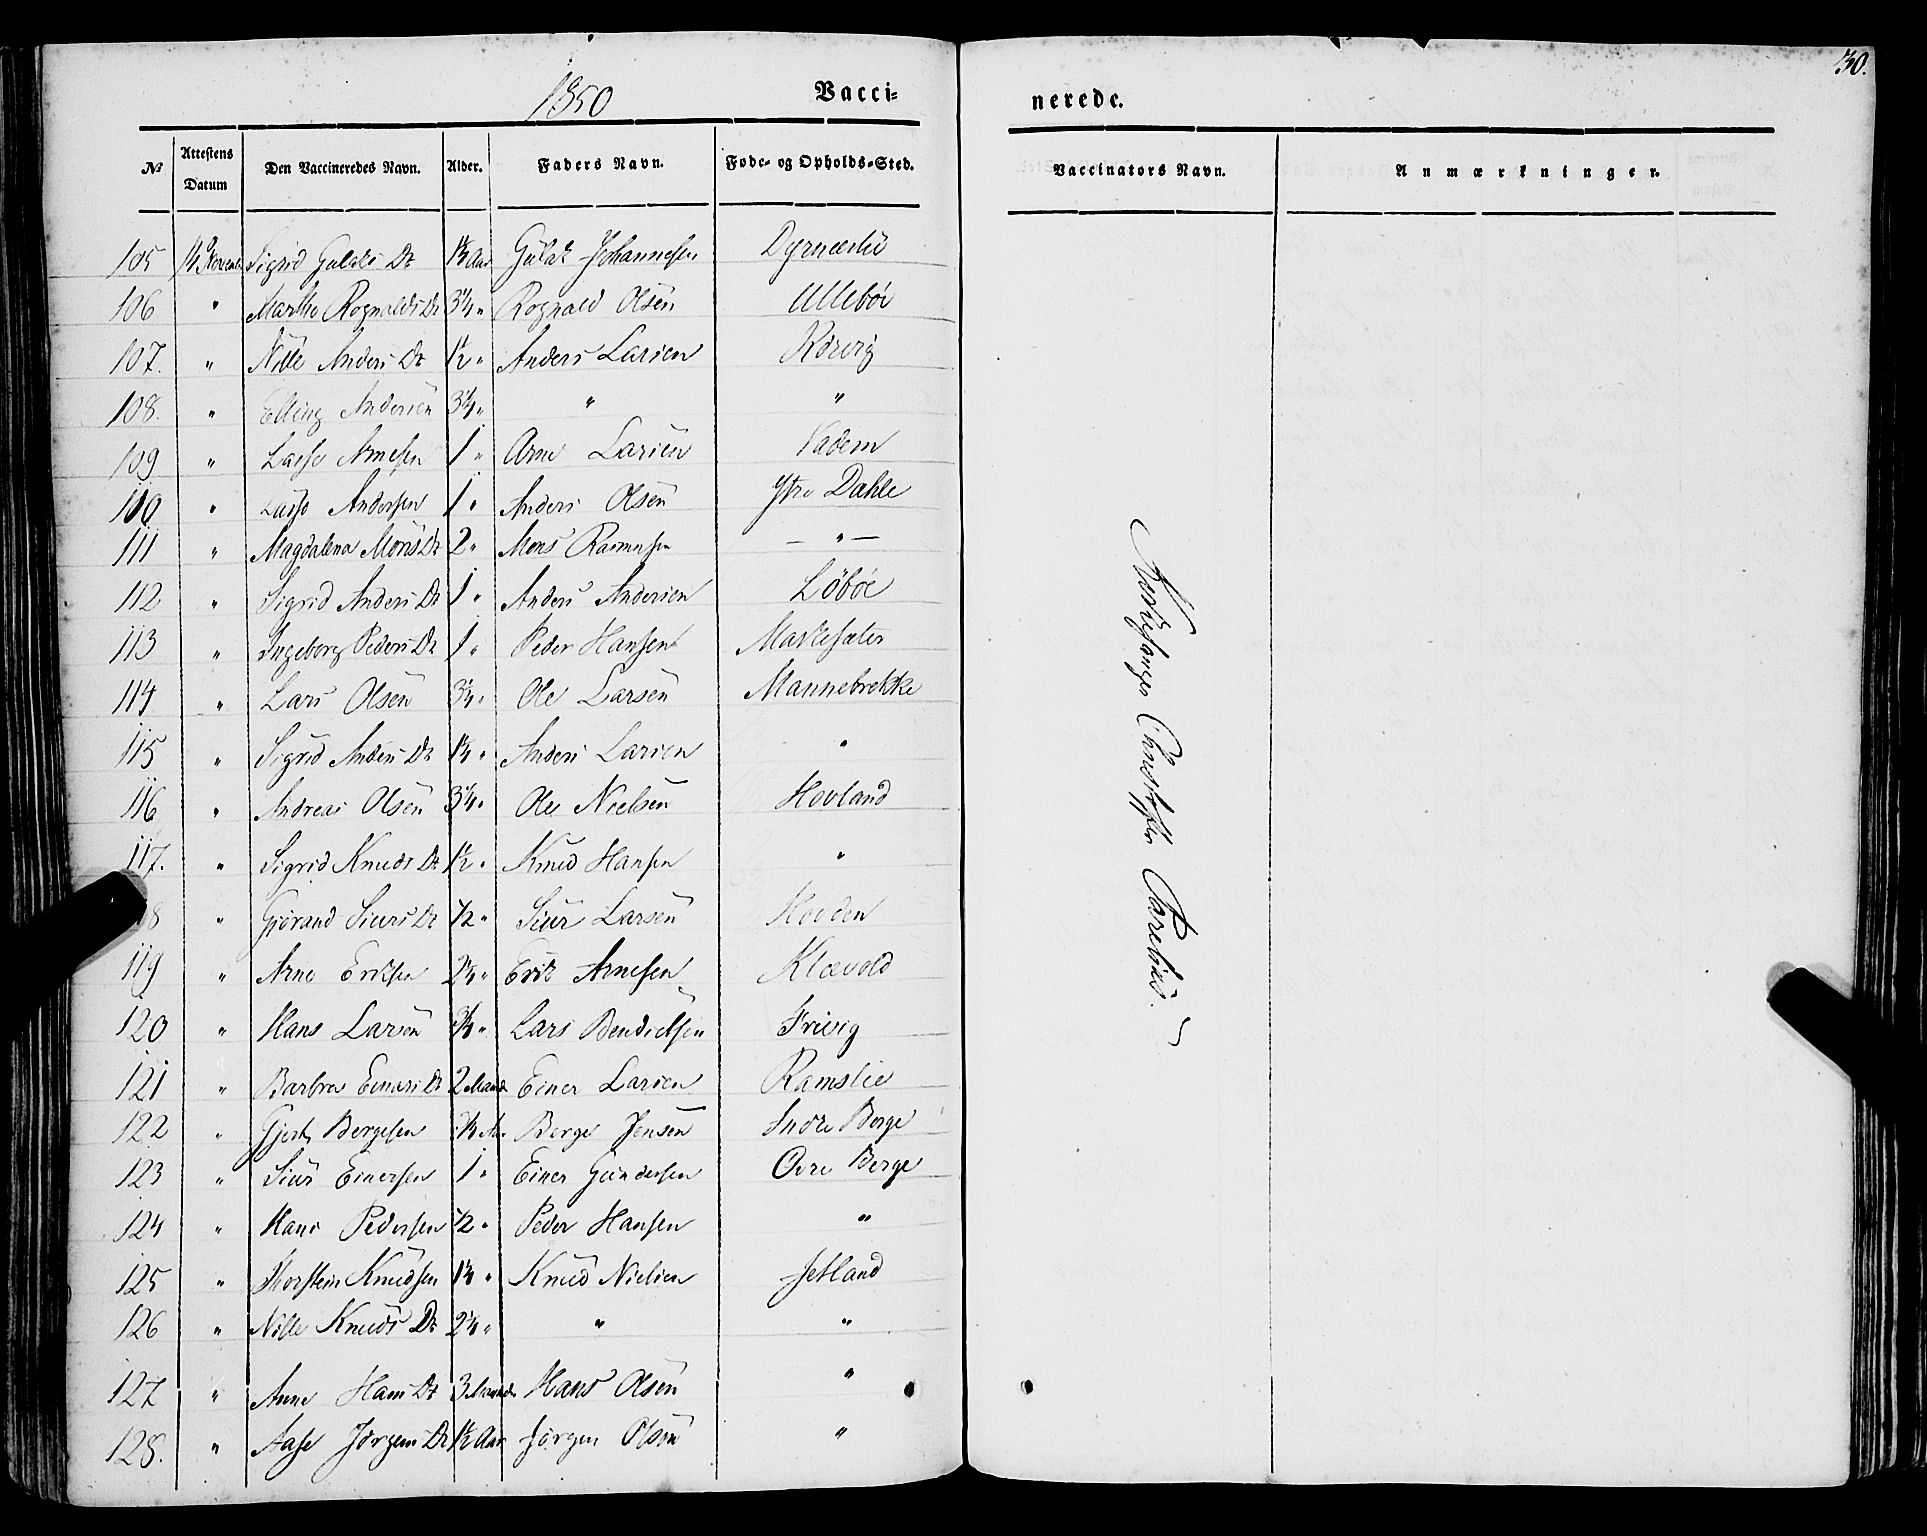 30.
1850 Vacci=
nerede.
№ Attestens Datum Den Vaccineredes Navn. Alder. Faders Navn. Føde- og Opholds-Sted.
Vaccinators Navn. Anmærkninger.
105 Sigrid Gulaks Dr Gulak Johannesen
106 " Marthe Rognalds Dr 3/4 " Rognald Olsen Ullebøe
107. " Nille Anders Dr 1/2 " Anders Larsen Rörvig
108. " Elling Andersen 3/4 " " "
109 " Lasse Arnesen 1 " Arne Larsen Vadem
110 " Lasse Andersen 1 " Anders Olsen Ytre Dahle
111 " Magdalena Mons Dr 2 " Mons Rasmusen — " —
112 " Sigrid Anders Dr 1 " Anders Andersen Löböe
113 " Ingeborg Peders Dr 1 " Peder Hansen Maskesæter
114 " Lars Olsen 3/4 " Ole Larsen Mannebrekke
115 " Sigrid Anders Dr 1 1/4 " Anders Larsen "
116 " Andreas Olsen 3/4 " Ole Nielsen Hovland
117. " Sigrid Knuds Dr 1/2 " Knud Hansen "
8 " Gjörand Siurs Dr 1/2 " Siur Larsen Hovden
119 " Arne Eriksen 2 1/4 " Erik Arnesen Klævold
120 " Hans Larsen 3/4 " Lars Bendicksen Trivig
121 " Barbra Einars Dr 2 Maand Einer Larsen Ramslie
122 " Gjert Bergesen Berge Jensen Indre Berge
123 " Siur Einersen 1 " Einer Gundersen Övre Berge
124 " Hans Pedersen 1/2 " Peder Hansen "
125 " Thorstein Knudsen 1 1/4 " Knud Nielsen Setland
126 " Nille Knuds Dr 2 1/4 " " "
127 " Anne Hans Dr 3 Maand Hans Olsen "
128. " Aase Jörgens Dr 1 1/2 Aar Jörgen Olsen "
Kirkesanger Christopher Parelius.